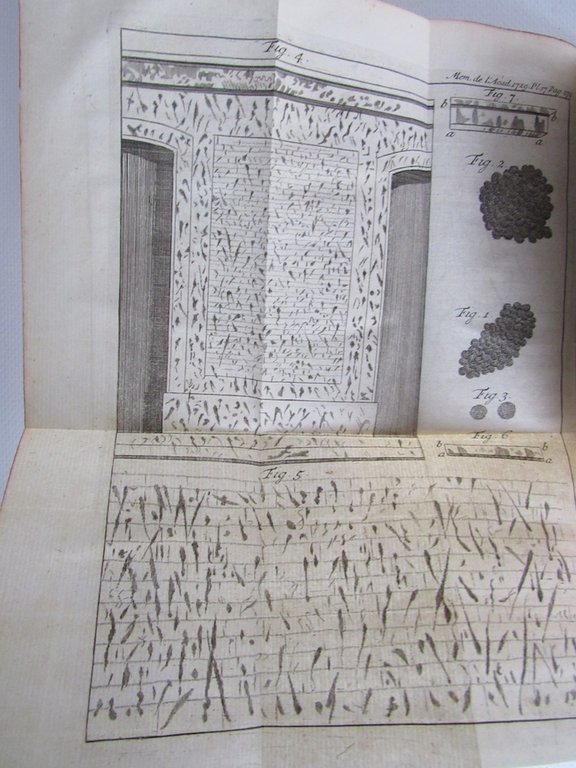 Fig. 4.
Mem. de l'Acad. 1729. Pl. 17. Pag.
Fig 7.
b b
a a
Fig. 2
Fig. 1
Fig. 3
Fig. 6
b b
a a
Fig. 5